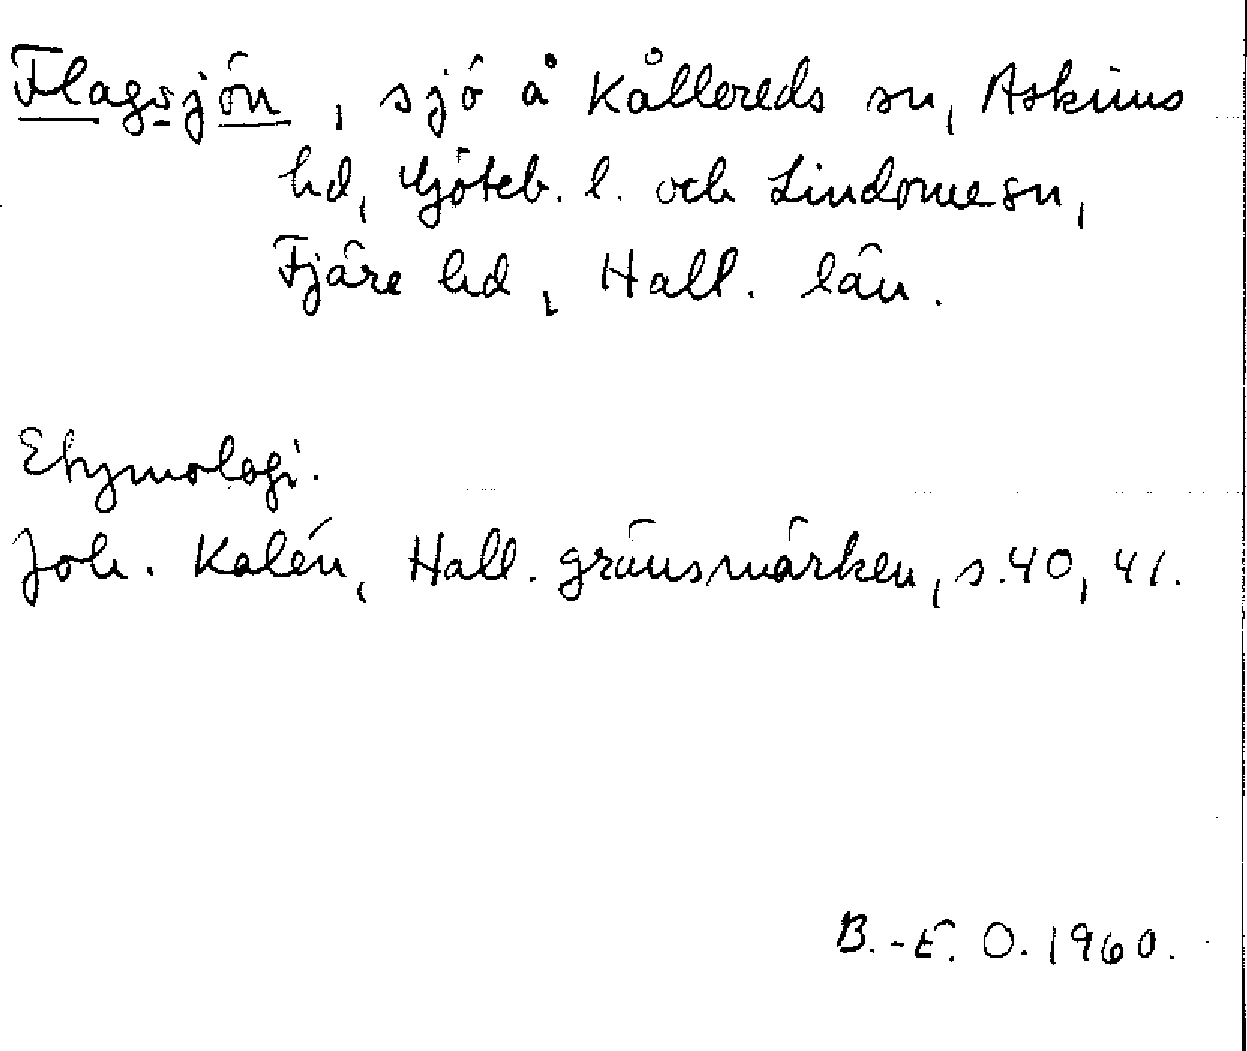 Flagsjön, sjö å Kållereds sn, Askims
hd, Göteb. l. och Lindome sn,
Fjäre hd, Hall. län.
Etymologi.
Joh. Kalén, Hall. gränsmärken, s. 40, 41.
B.-E. O. 1960.